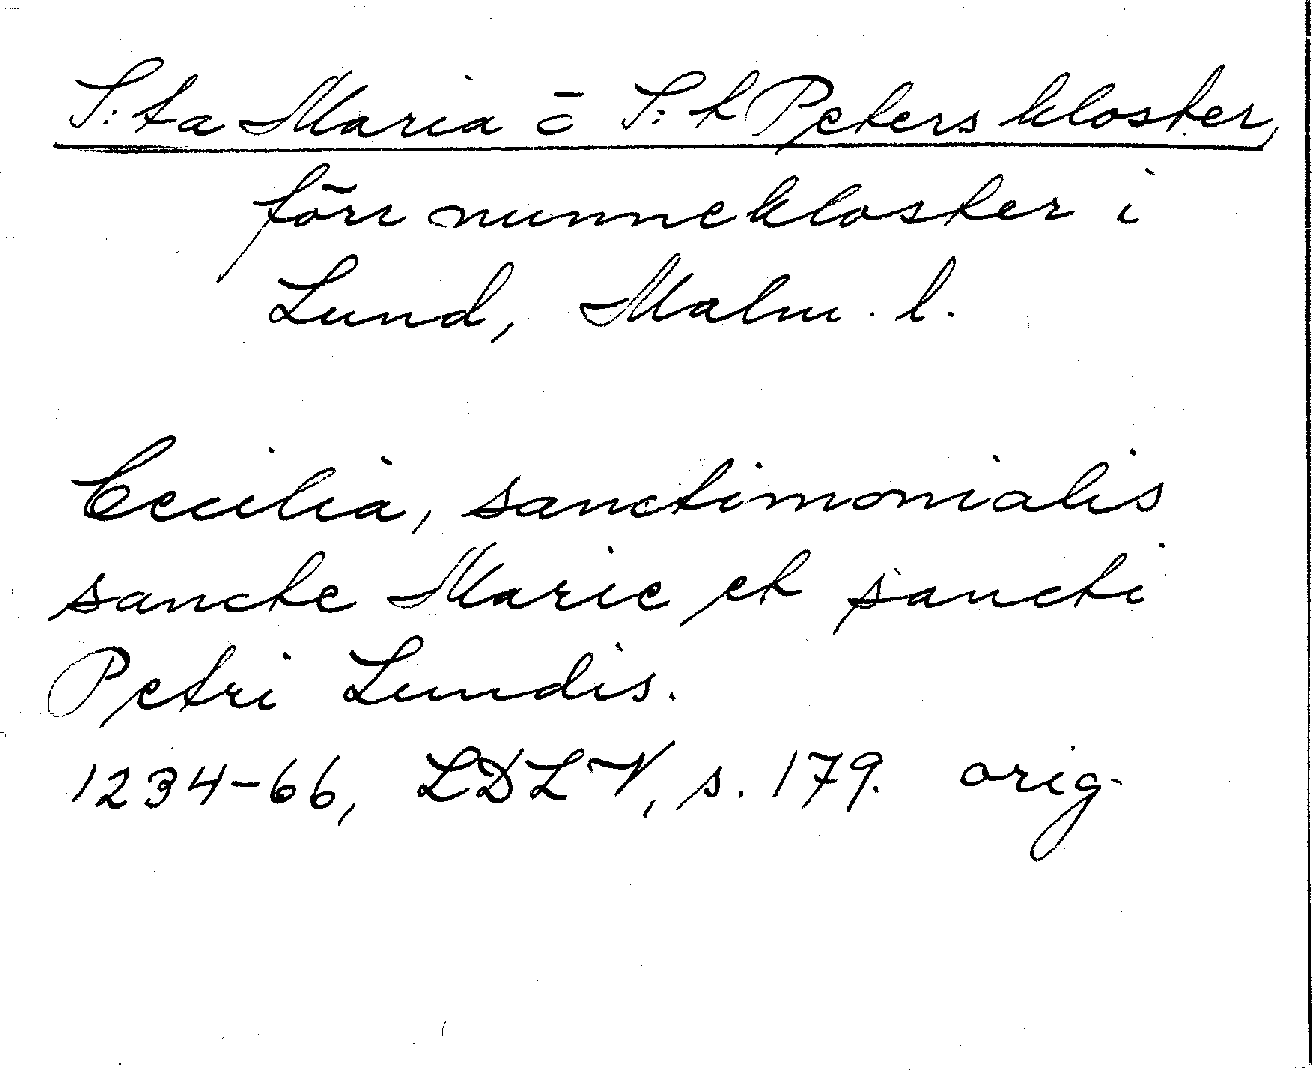 S:ta Maria o S:t Peters kloster,
förr nunnekloster i
Lund, Malm. l.
Cecilia, sanctimonialis
sancte Marie et sancti
Petri Lundis.
1234-66, LDLV, s. 179. orig.